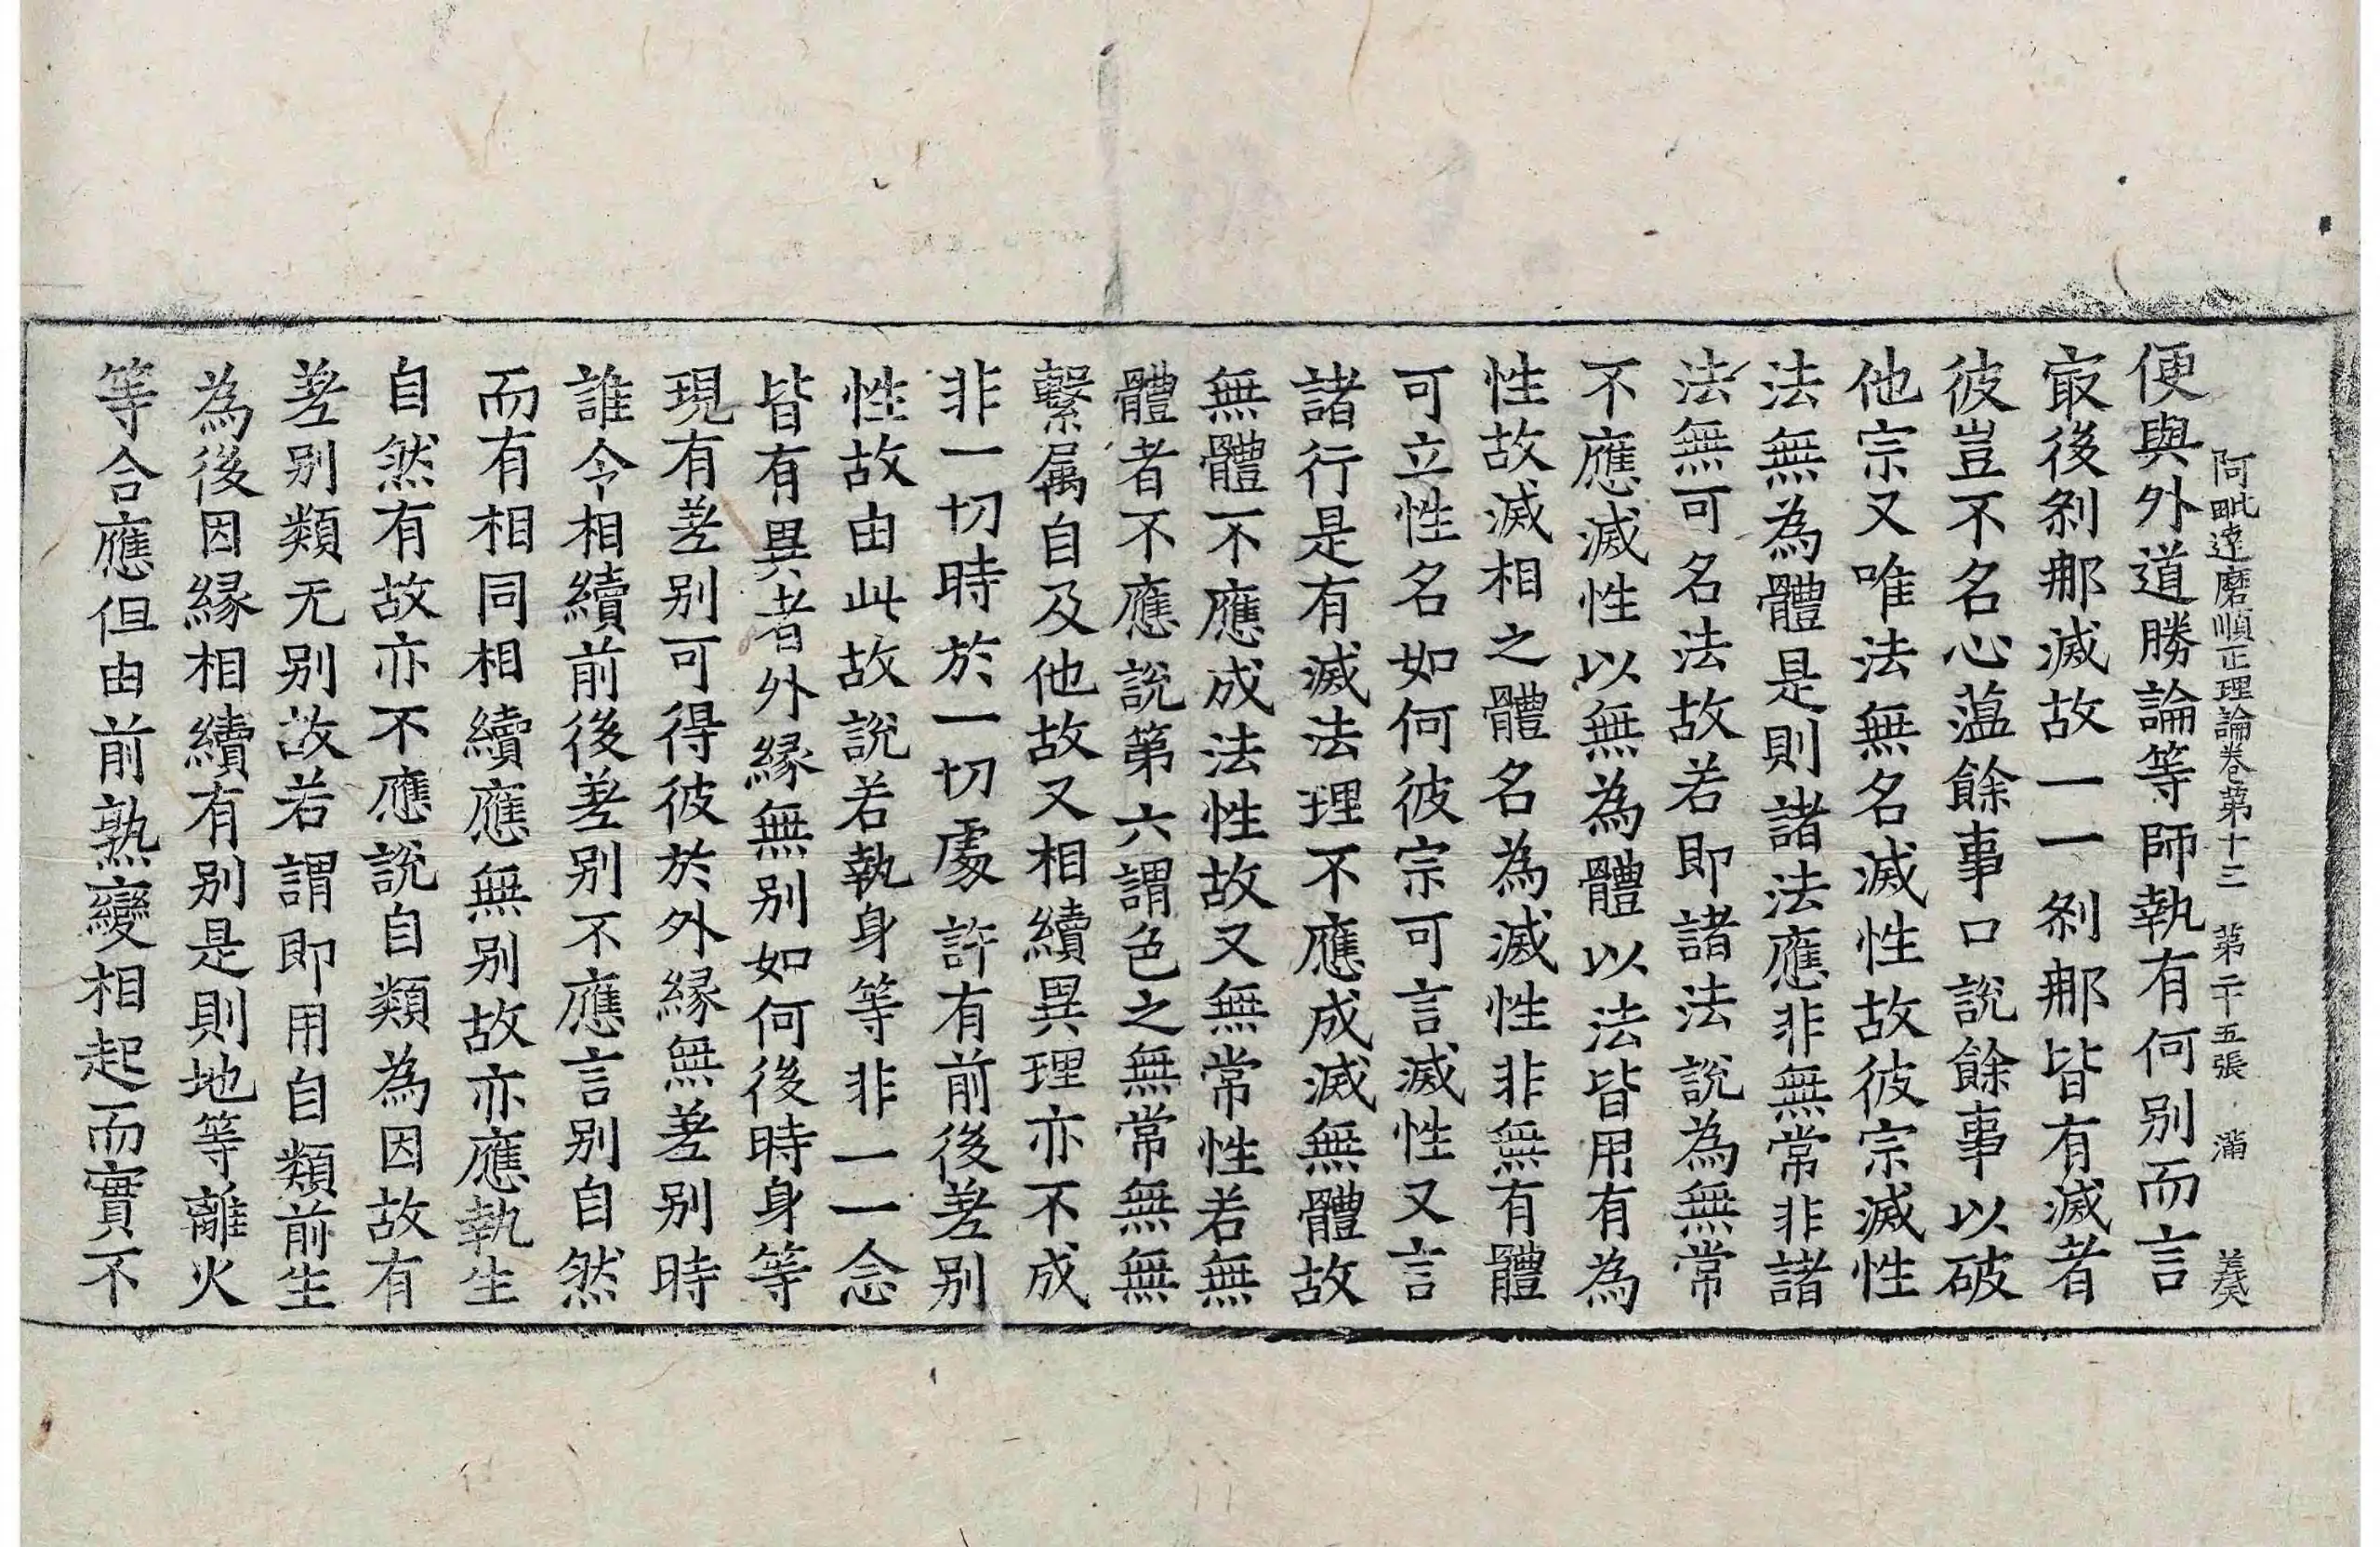 阿毗達磨順正理論卷第十三　第二十五張　滿　羕
便與外道勝論等師執有何别而言
㝡後剎那滅故一一剎那皆有滅者
彼豈不名心薀餘事口說餘事以破
他宗又唯法無名滅性故彼宗滅性
法無為體是則諸法應非無常非諸
法無可名法故若即諸法說為無常
不應滅性以無為體以法皆用有為
性故滅相之體名為滅性非無有體
可立性名如何彼宗可言滅性又言
諸行是有滅法理不應成滅無體故
無體不應成法性故又無常性若無
體者不應說第六謂色之無常無無
繫属自及他故又相續異理亦不成
非一切時於一切處許有前後差别
性故由此故說若執身等非一一念
皆有異者外緣無别如何後時身等
現有差别可得彼於外緣無差别時
誰令相續前後差别不應言别自然
而有相同相續應無别故亦應執生
自然有故亦不應說自類為因故有
差别類无别故若謂即用自類前生
為後因緣相續有别是則地等離火
等合應但由前熟變相起而實不